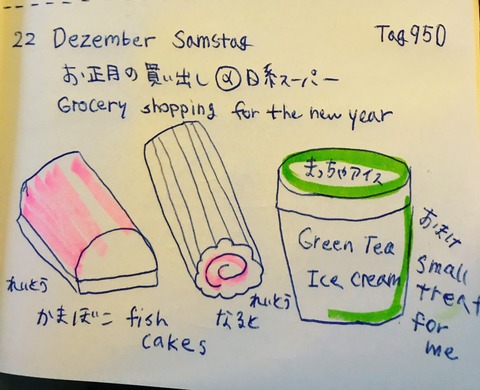 22 Dezember Samstag
Tag950
お正月の買い出し@日系スーパー
Grocery shopping for the new year
まっちゃアイス
Green Tea
Ice cream
れいとう
かまぼこ fish
cakes
れいとう
なると
おまけ
small
treat
for
me